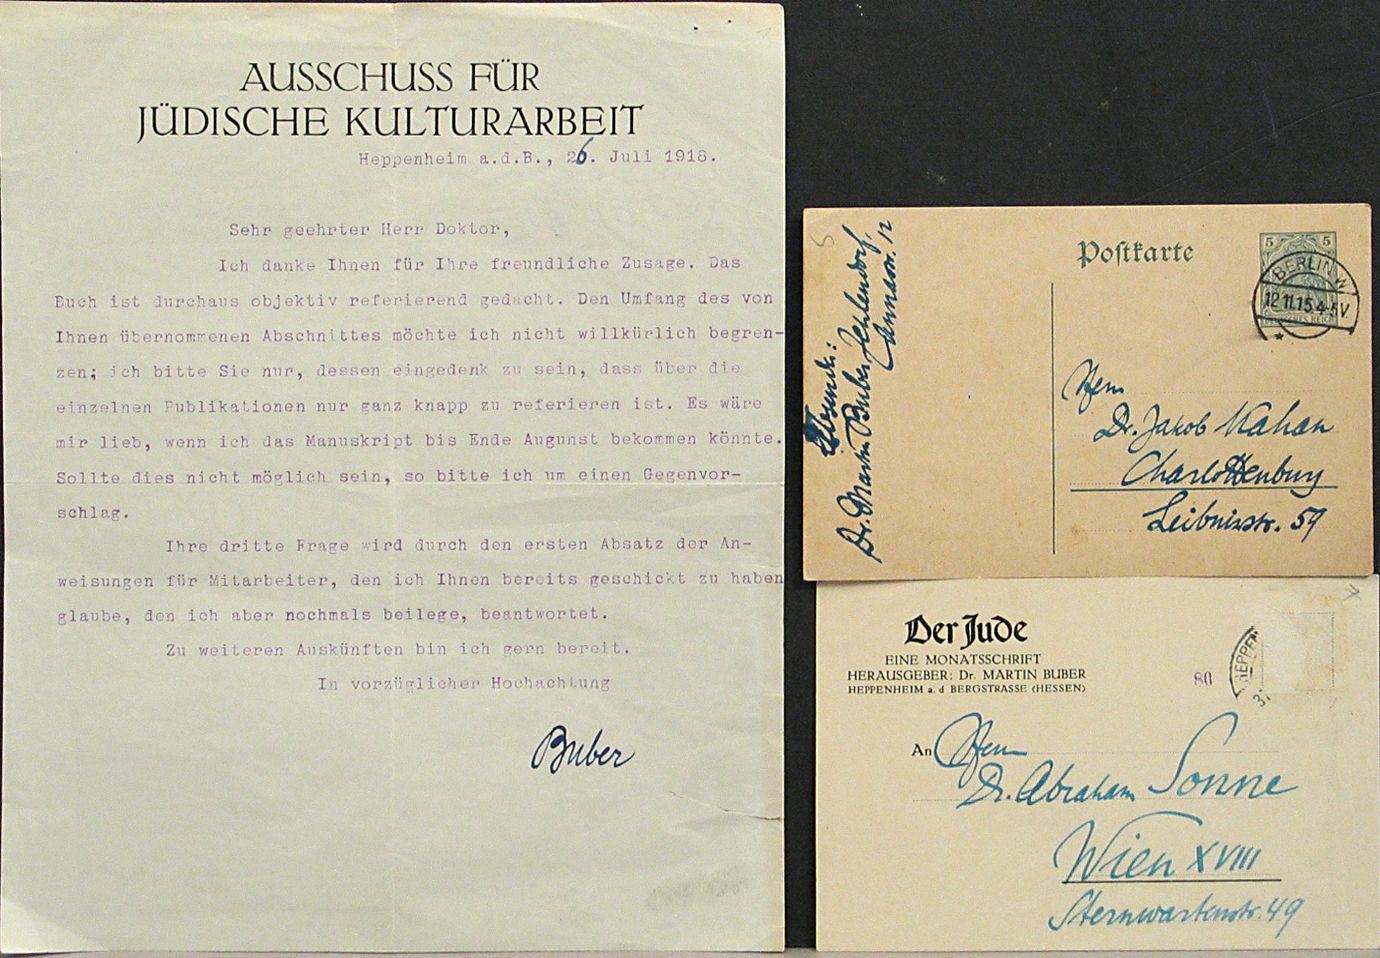 AUSSCHUSS FÜR
JÜDISCHE KULTURARBEIT
Heppenheim a.d.B., 26. Juli 1918.
Sehr geehrter Herr Doktor,
Ich danke Ihnen für Ihre freundliche Zusage. Das
Buch ist durchaus objektiv referierend gedacht. Den Umfang des von
Ihnen übernommenen Abschnittes möchte ich nicht willkürlich begren-
zen; ich bitte Sie nur, dessen eingedenk zu sein, dass über die
einzelnen Publikationen nur ganz knapp zu referieren ist. Es wäre
mir lieb, wenn ich das Manuskript bis Ende Augunst bekommen könnte.
Sollte dies nicht möglich sein, so bitte ich um einen Gegenvor-
schlag.
Ihre dritte Frage wird durch den ersten Absatz der An-
weisungen für Mitarbeiter, den ich Ihnen bereits geschickt zu haben
glaube, den ich aber nochmals beilege, beantwortet.
Zu weiteren Auskünften bin ich gern bereit.
In vorzüglicher Hochachtung
Buber
Absender:
Dr. Martin Buber Zehlendorf,
Annastr. 12
Postkarte
5 5
BERLIN W
12 11.15.4-5V.
DEUTSCHES REICH
Herrn
Dr. Jakob Kahan
Charlottenburg
Leibnizstr. 59
Der Jude
EINE MONATSSCHRIFT
HERAUSGEBER: Dr. MARTIN BUBER
HEPPENHEIM a. d BERGSTRASSE (HESSEN)
80
HEPPEN
An Herrn
Dr. Abraham Sonne
Wien XVIII
Sternwartestr. 49